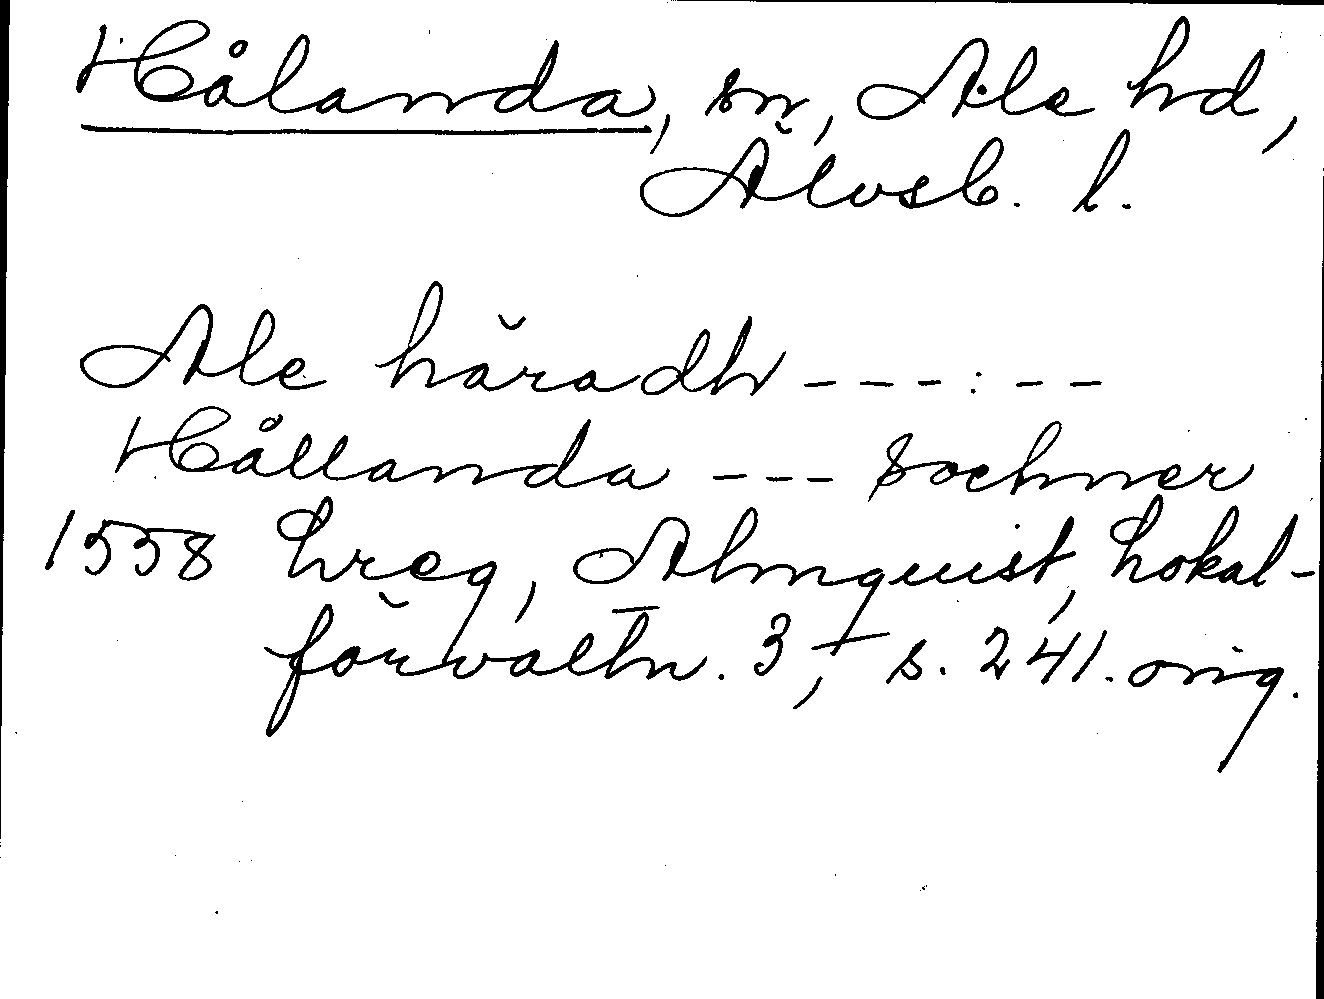 Hålanda, sn, Ale hd,
Älvsb. l.
Ale häradh ---:--
Hållanda --- Sochner
1558 Lreg, Almquist, Lokal-
förvaltn. 3, s. 241. orig.